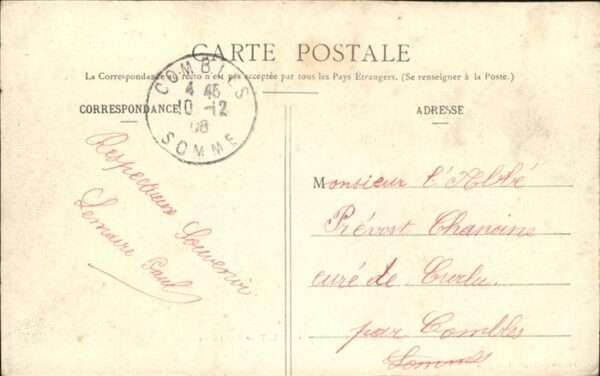 CARTE POSTALE
La Correspondance au recto n'est pas acceptée par tous les Pays Etrangers. (Se renseigner à la Poste.)
COMBLES
4 45
10 -12
08
SOMME
CORRESPONDANCE
Respectueux Souvenir
Lemaire Paul
ADRESSE
Monsieur l'Abbé
Prévost Chanoine
curé de Curlu
par Combles
Somme